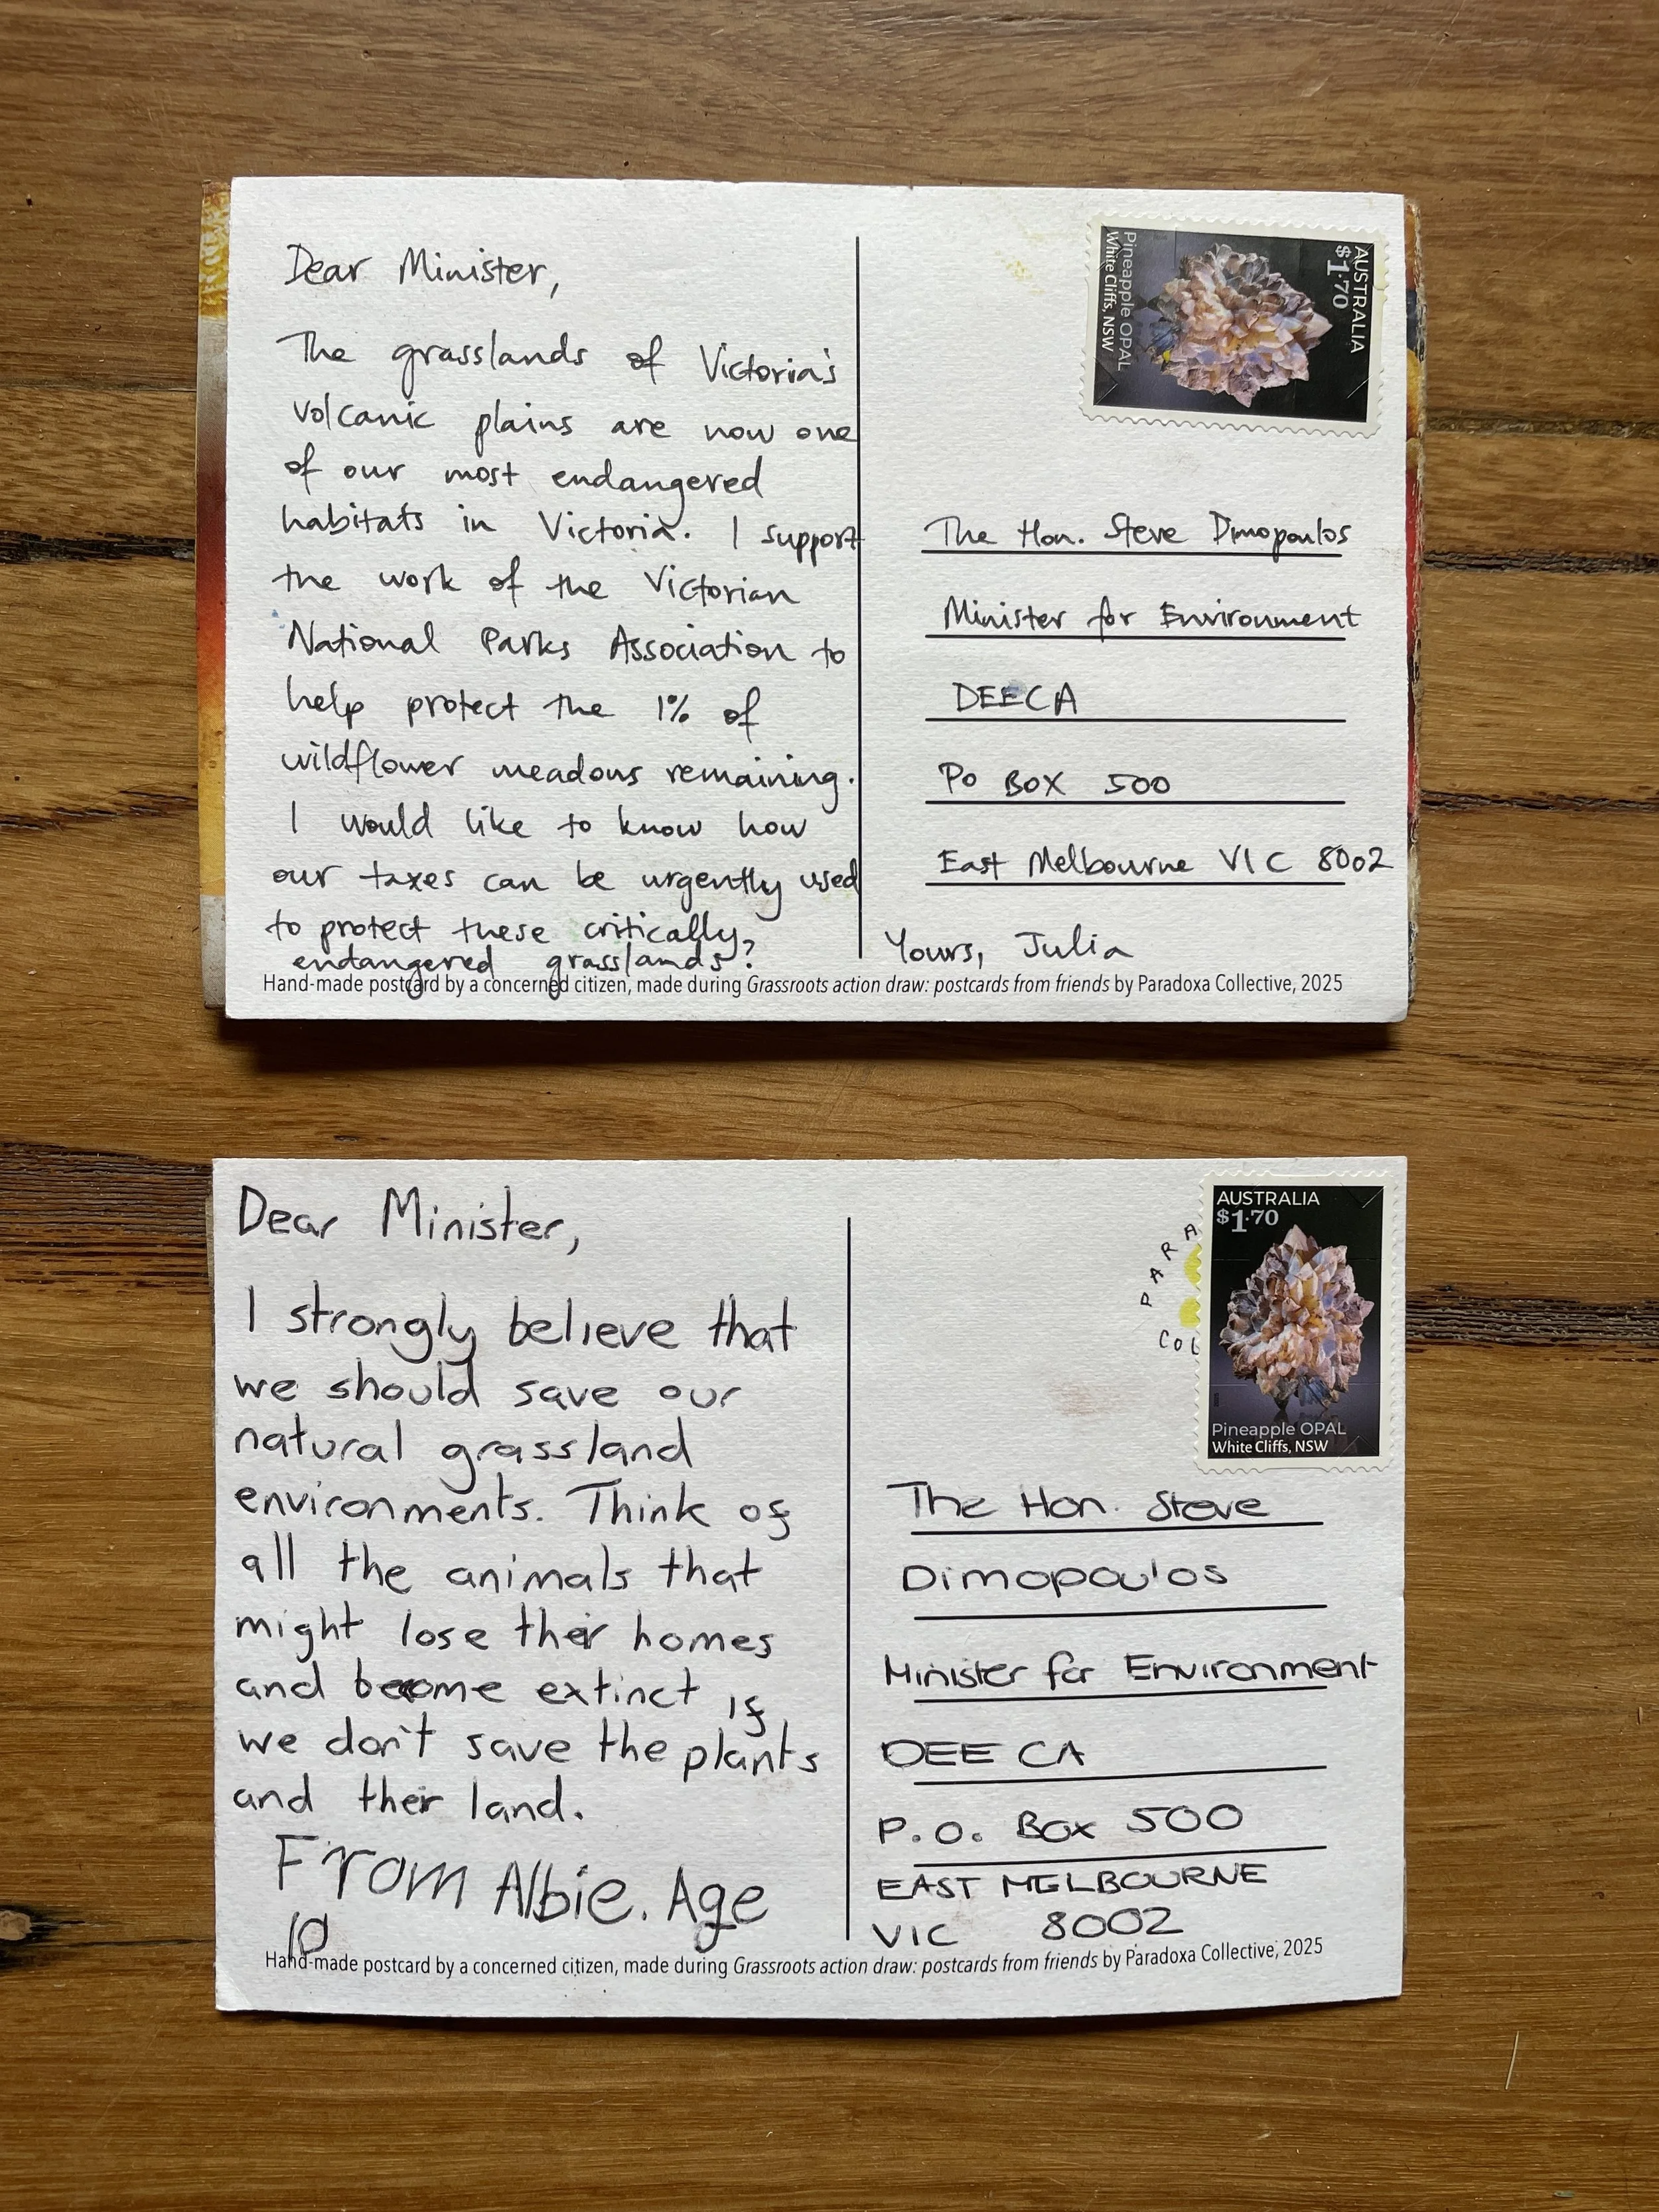 Dear Minister,
The grasslands of Victoria's
volcanic plains are now one
of our most endangered
habitats in Victoria. I support
the work of the Victorian
National Parks Association to
help protect the 1% of
wildflower meadows remaining.
I would like to know how
our taxes can be urgently used
to protect these critically
endangered grasslands?
AUSTRALIA
$1.70
Pineapple OPAL
White Cliffs, NSW
The Hon. Steve Dimopoulos
Minister for Environment
DEECA
PO BOX 500
East Melbourne VIC 8002
Yours, Julia
Hand-made postcard by a concerned citizen, made during Grassroots action draw: postcards from friends by Paradoxa Collective, 2025
Dear Minister,
I strongly believe that
we should save our
natural grassland
environments. Think of
all the animals that
might lose their homes
and become extinct if
we don't save the plants
and their land.
From Albie. Age
10
PARA
COL
AUSTRALIA
$1.70
Pineapple OPAL
White Cliffs, NSW
The Hon. Steve
Dimopoulos
Minister for Environment
DEE CA
P.O. Box 500
EAST MELBOURNE
VIC 8002
Hand-made postcard by a concerned citizen, made during Grassroots action draw: postcards from friends by Paradoxa Collective, 2025